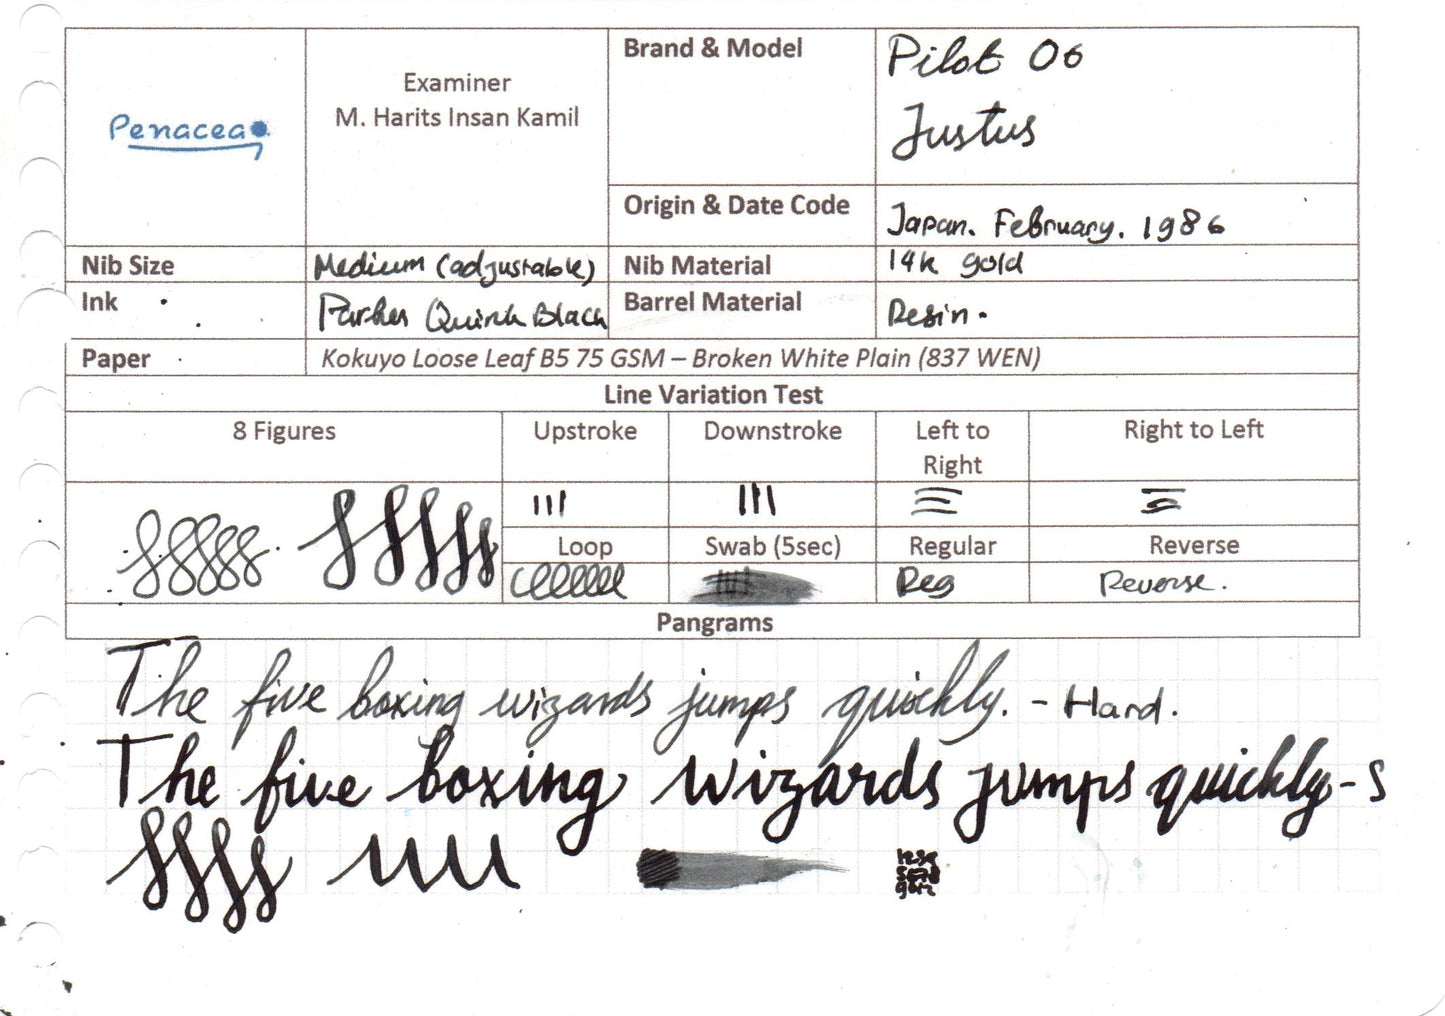 Penacea
Examiner
M. Harits Insan Kamil
Brand & Model
Pilot 06
Justus
Origin & Date Code
Japan. February. 1986
Nib Size
Medium (adjustable)
Nib Material
14k gold
Ink
Parker Quink Black
Barrel Material
Resin.
Paper
Kokuyo Loose Leaf B5 75 GSM – Broken White Plain (837 WEN)
Line Variation Test
8 Figures
Upstroke
Downstroke
Left to
Right
Right to Left
Loop
Swab (5sec)
Regular
Reverse
Reg
Reverse.
Pangrams
The five boxing wizards jumps quickly. - Hard.
The five boxing wizards jumps quickly - S